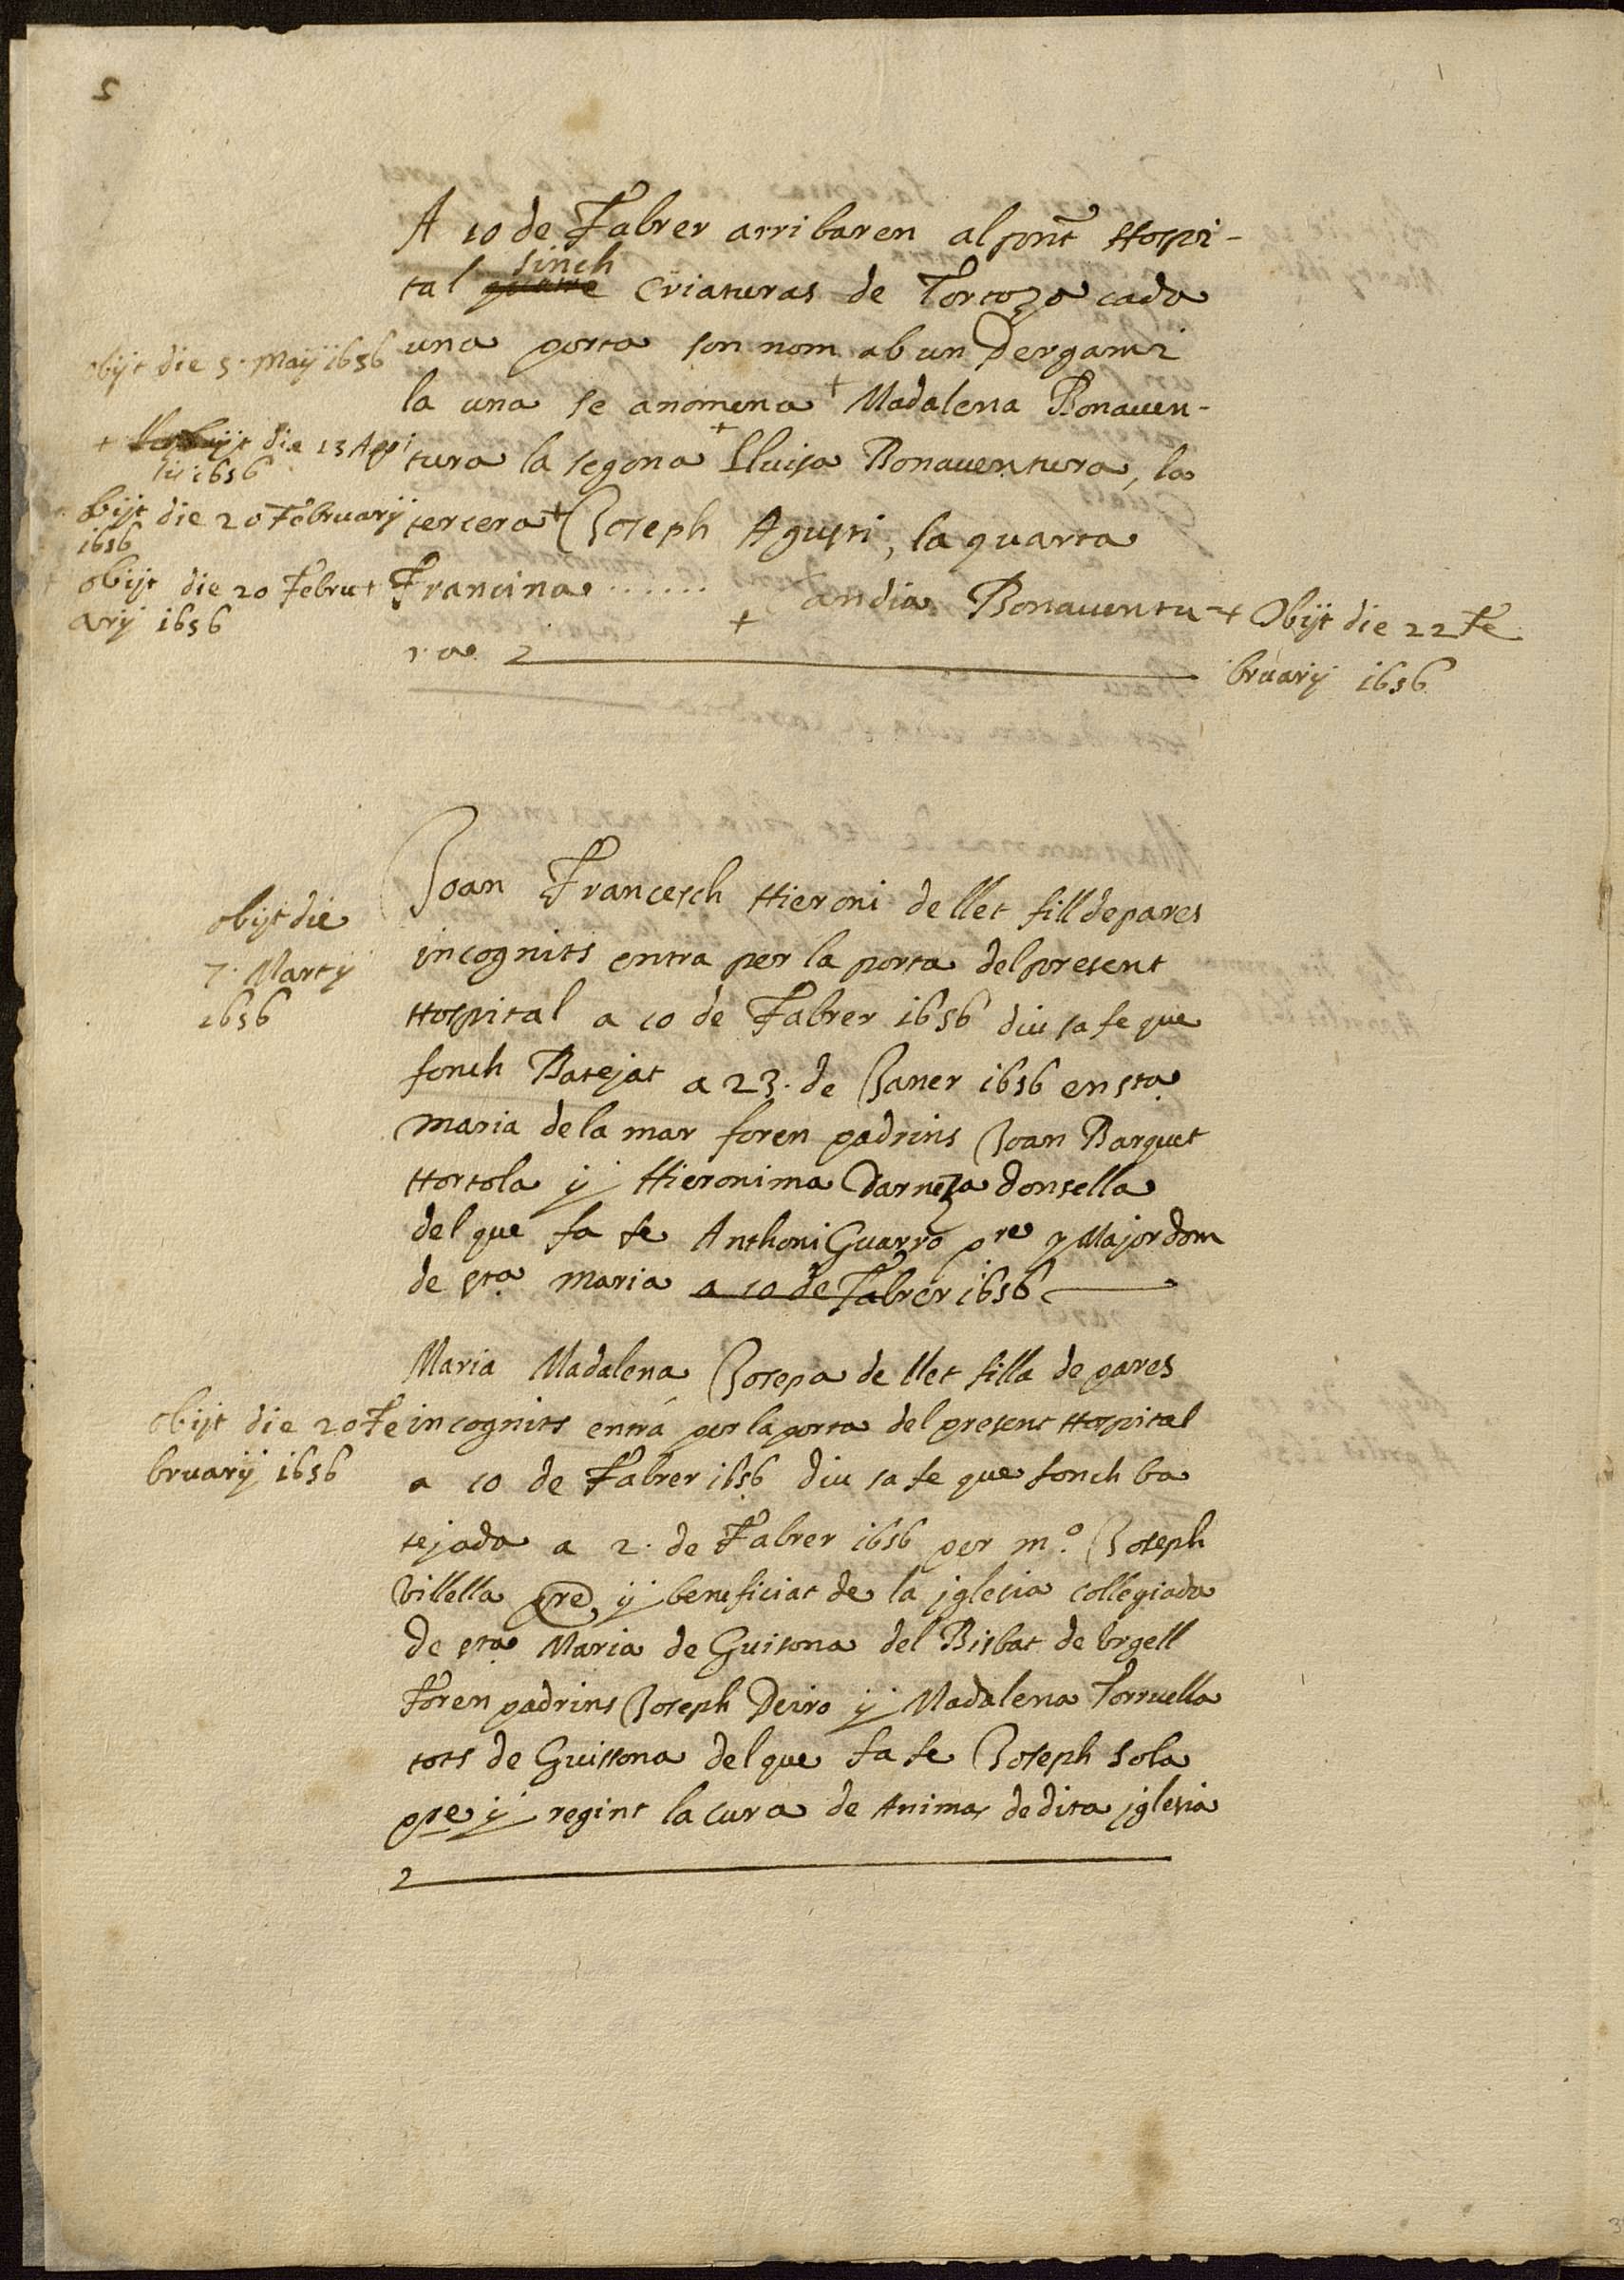 5
A 10 de Fabrer arribaren al pnt Hospi-
sinch
tal quatre Criaturas de Tortoza cada
una porta son nom ab un Pergami
obijt die 5. Maij 1656
la una se anomena + Madalena Bonauen-
+ obijt die 13 Apri
lis 1656
tura la segona + Lluisa Bonauentura, la
obijt die 20 Februarij
1656
tercera + Joseph Agusti, la quarta
obijt die 20 Febru +
arij 1656
Francina ...... andia Bonauentu-
+
ra 2
+ Obijt die 22 Fe
bruarij 1656
obijt die
7. Martij
1656
Joan Francesch Hieroni de llet fill de pares
incognits entra per la porta del present
Hospital a 10 de Fabrer 1656 diu sa fe que
fonch Batejat a 23. de Janer 1656 en sta.
maria de la mar foren padrins Joan Barquet
Hortola y Hieronima Darneza donsella
del que fa fe Anthoni Guarro pre y Majordom
de sta. maria a 10 de Fabrer 1656
Maria Madalena Josepa de llet filla de pares
obijt die 20 Fe
bruarij 1656
incognits entrá per la porta del present Hospital
a 10 de Fabrer 1656 diu sa fe que fonch ba
tejada a 2. de Fabrer 1656 per mo. Joseph
Villella pre y beneficiat de la jglesia collegiada
de sta. Maria de Guisona del Bisbat de Vrgell
Foren padrins Joseph Deiro y Madalena Torruella
tots de Guissona del que fa fe Joseph Sola
pre y regint la cura de Animas de dita jglesia
2